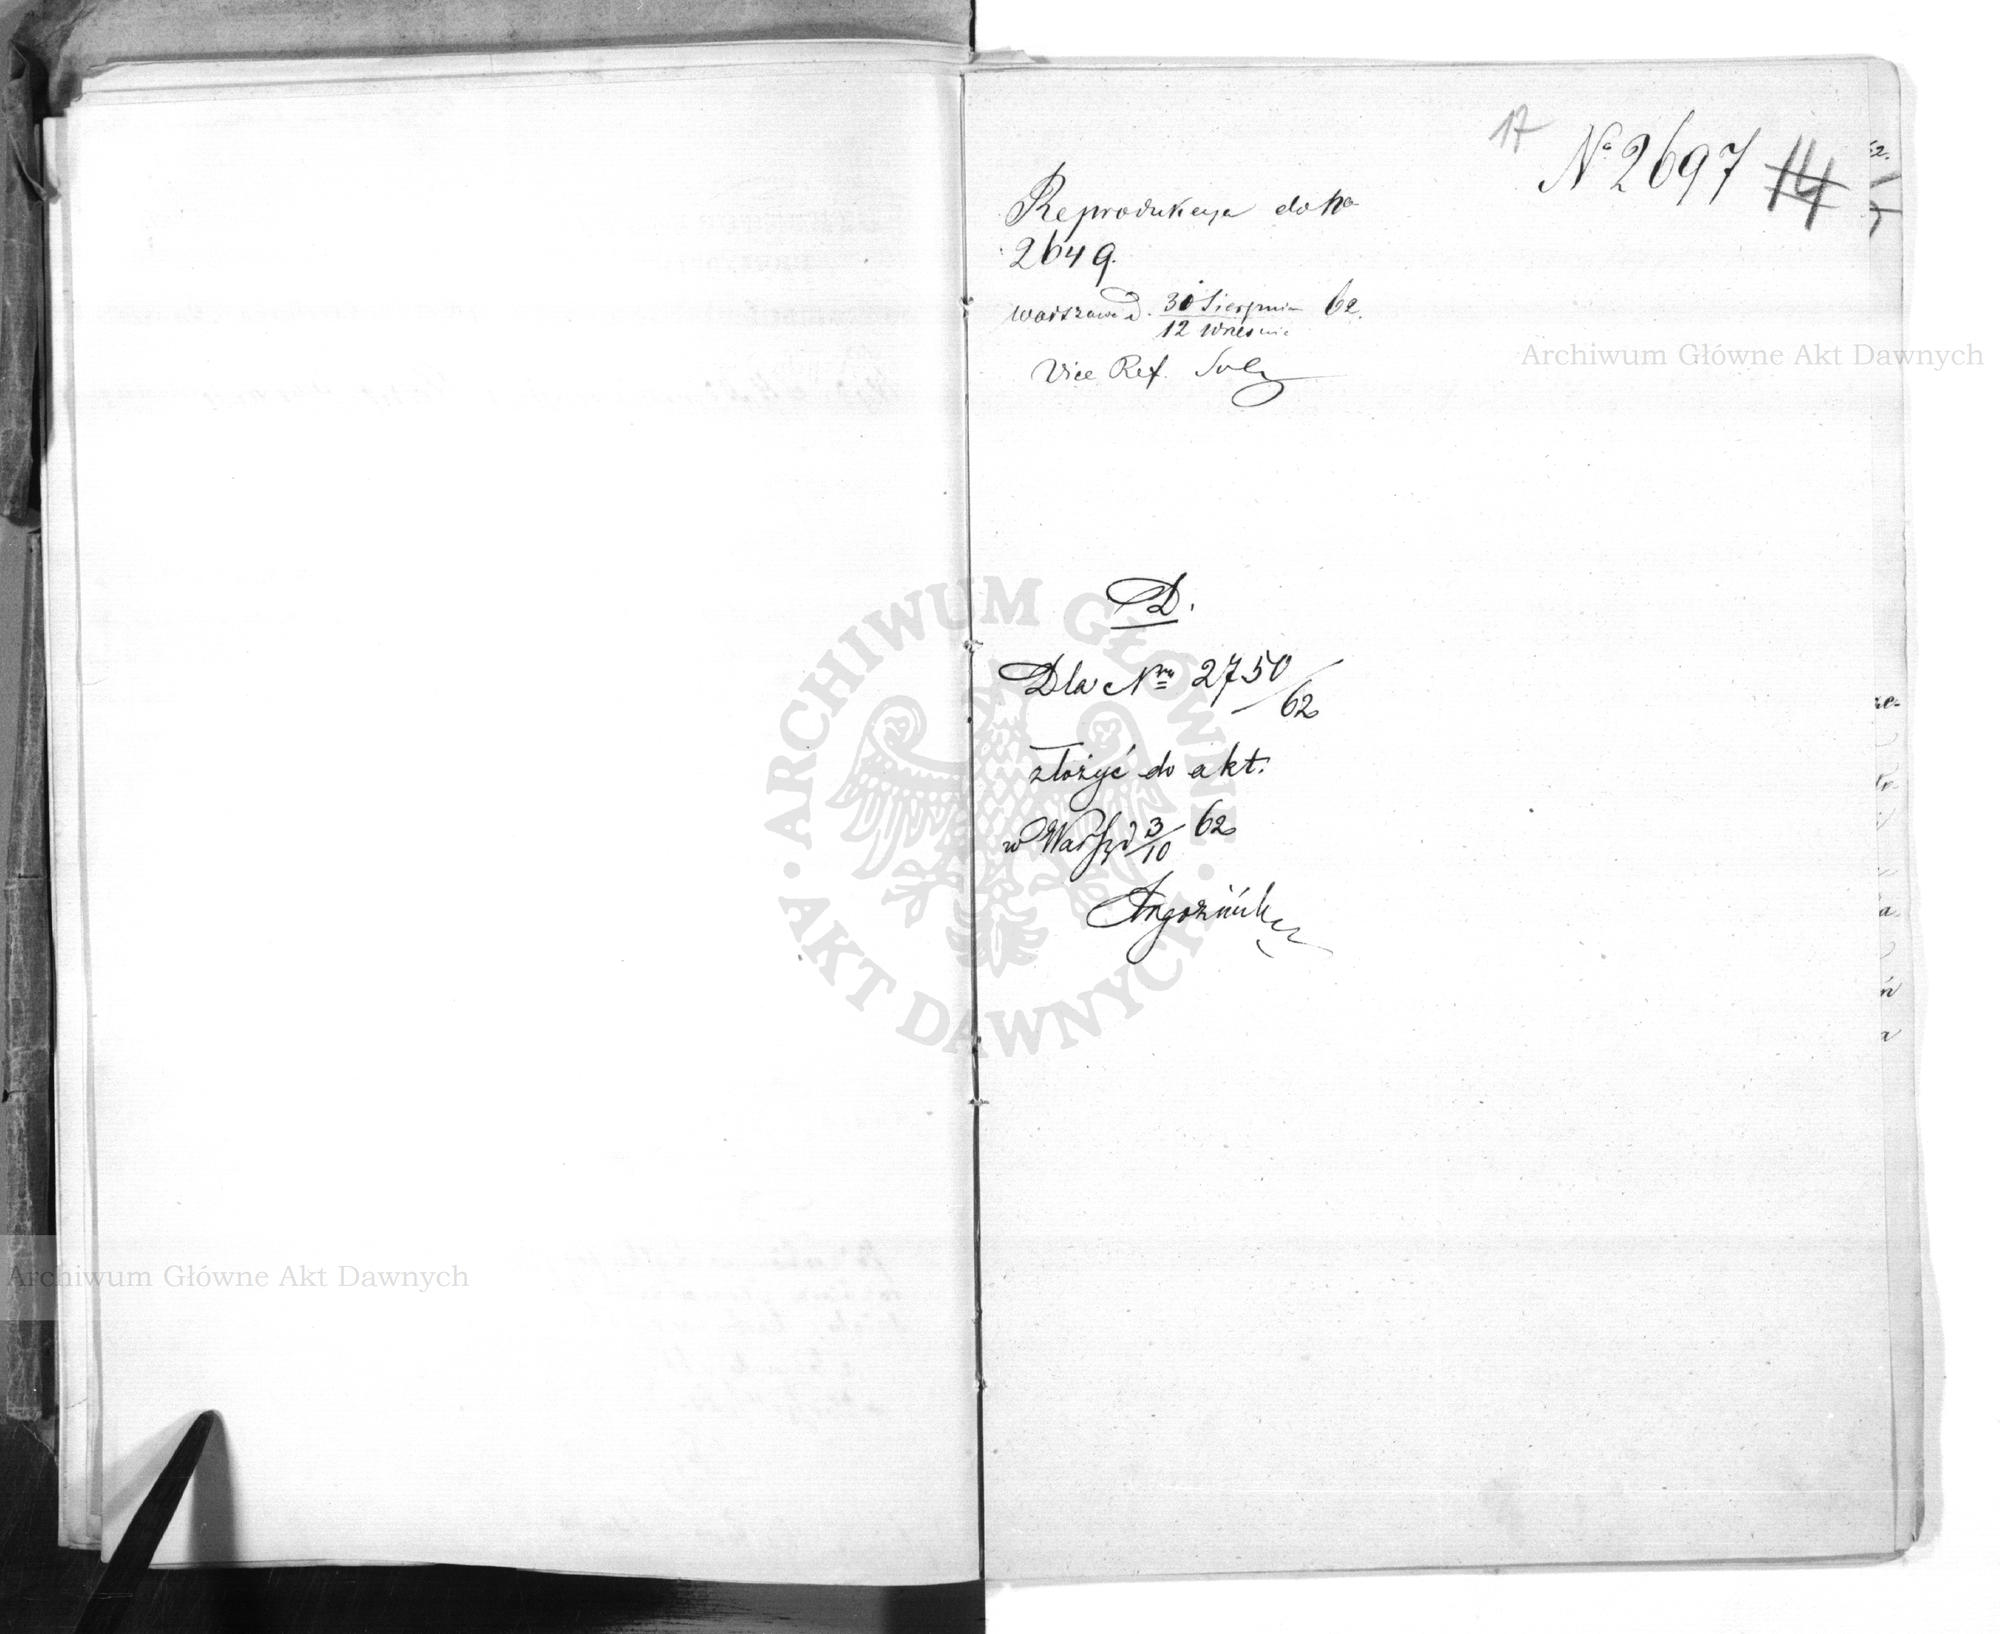 17 No 2697 14
Reprodukcya do No
2649.
Warszawa d. 30 Sierpnia 62.
12 Września
Vice Ref.
D.
Dla Nru 2750/62
złożyć do akt.
w Warsz d 3/10 62
Archiwum Główne Akt Dawnych
Archiwum Główne Akt Dawnych
· ARCHIWUM GŁÓWNE · AKT DAWNYCH